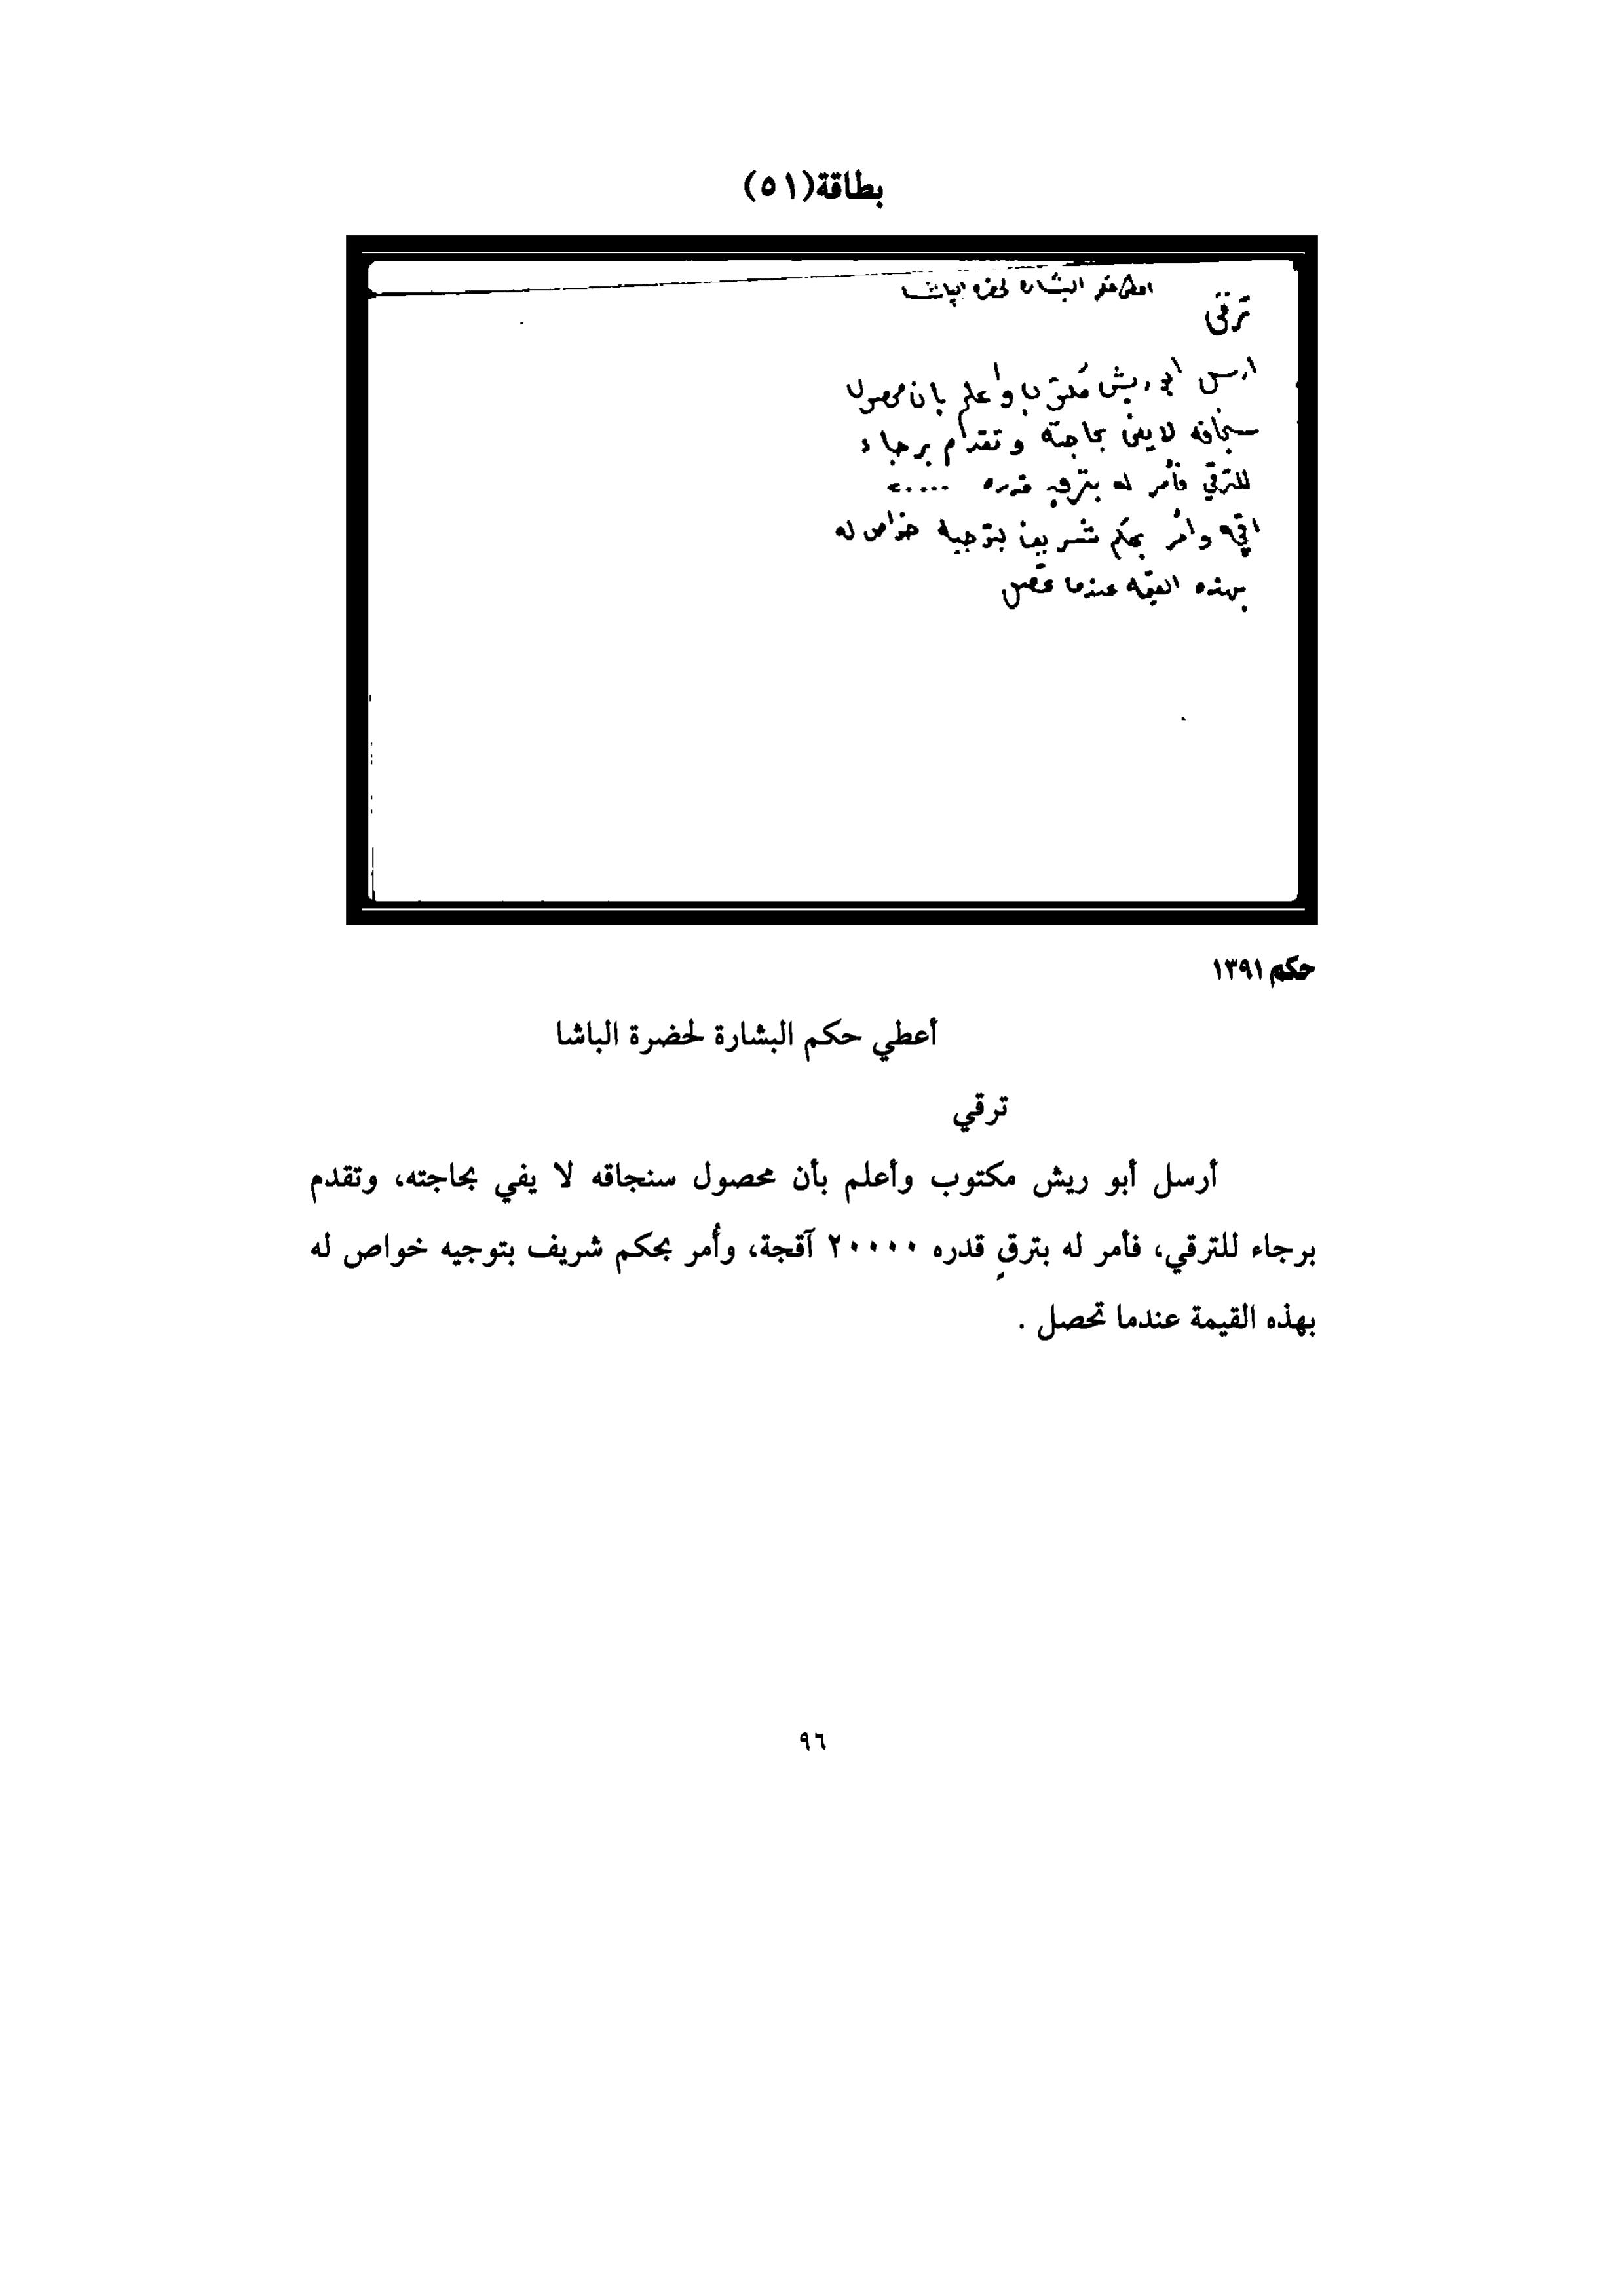 بطاقة(٥١)
اعطى حكم البشاره لحضره الباشا
ترقى
ارسل ابو ريش مكتوب واعلم بان محصول
سنجاقه لا يفى بحاجته وتقدم برجاء
للترقي فأمر له بترقٍ قدره ٢٠٠٠٠
اقجه وامُر بحكم شريف بتوجيه خواص له
بهذه القيمه عندما تحصل
حكم ١٣٩١
أعطي حكم البشارة لحضرة الباشا
ترقي
أرسل أبو ريش مكتوب وأعلم بأن محصول سنجاقه لا يفي بحاجته، وتقدم
برجاء للترقي، فأمر له بترقٍ قدره ٢٠٠٠٠ آقجة، وأُمر بحكم شريف بتوجيه خواص له
بهذه القيمة عندما تحصل .
٩٦